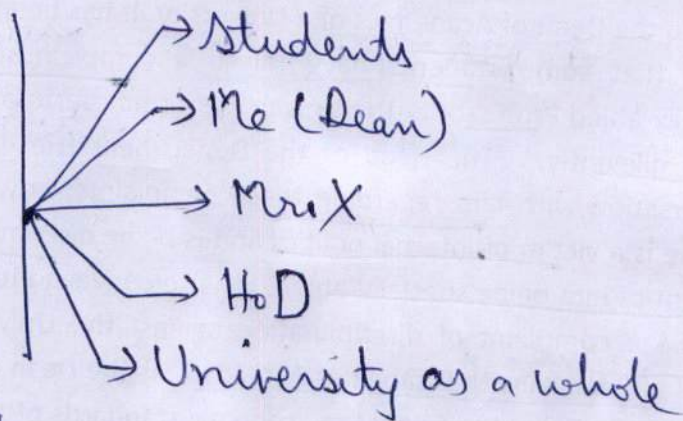 Students
Me (Dean)
Mr. X
HoD
University as a whole